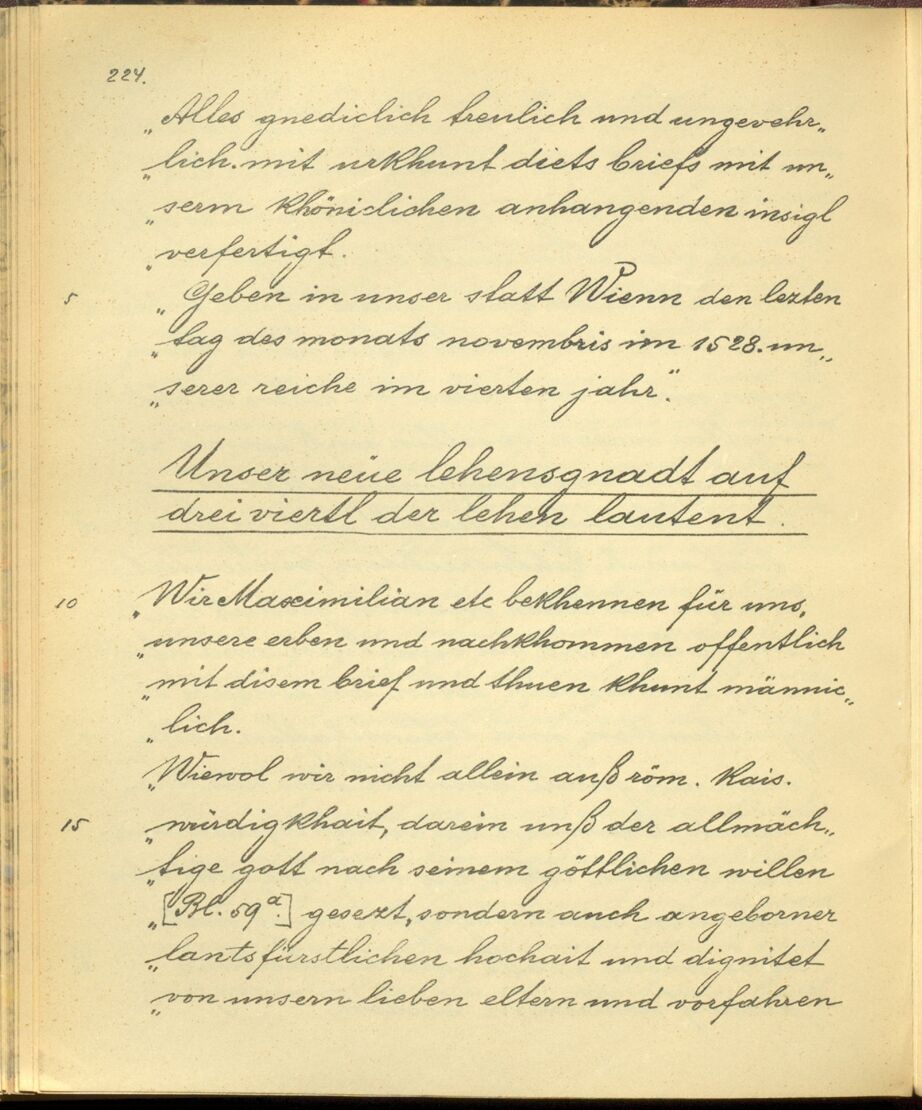 224.
„Alles gnediclich treulich und ungevehr„
„lich. mit urkhunt diets briefs mit un„
„serm khöniclichen anhangenden insigl
„verfertigt.
5 „Geben in unser statt Wienn den lezten
„tag des monats novembris im 1528. un„
„serer reiche im vierten jahr".
Unser neüe lehensgnadt auf
drei viertl der lehen lautent.
10 „Wir Maximilian etc bekhennen für uns,
„unsere erben und nachkhommen offentlich
„mit disem brief und thuen khunt männic„
„lich.
„Wiewol wir nicht allein auß röm. kais.
15 „würdigkhait, darein unß der allmäch„
„tige gott nach seinem göttlichen willen
„[Bl. 59a.] gesezt, sondern auch angeborner
„lantsfürstlichen hochait und dignitet
„von unsern lieben eltern und vorfahren